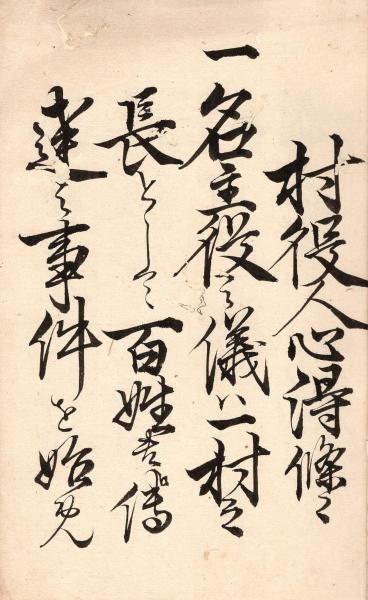 村役人心得條々
一名主役之儀ハ一村之
長として百姓共江傳
達之事件を始免